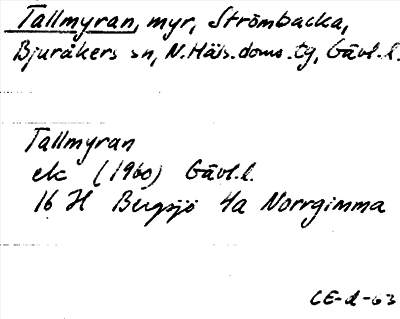 Tallmyran, myr, Strömbacka,
Bjuråkers sn, N. Häls. doms. tg, Gävl. l.
Tallmyran
ek (1960) Gävl. l.
16 H Bergsjö 4a Norrgimma
CE-d-63